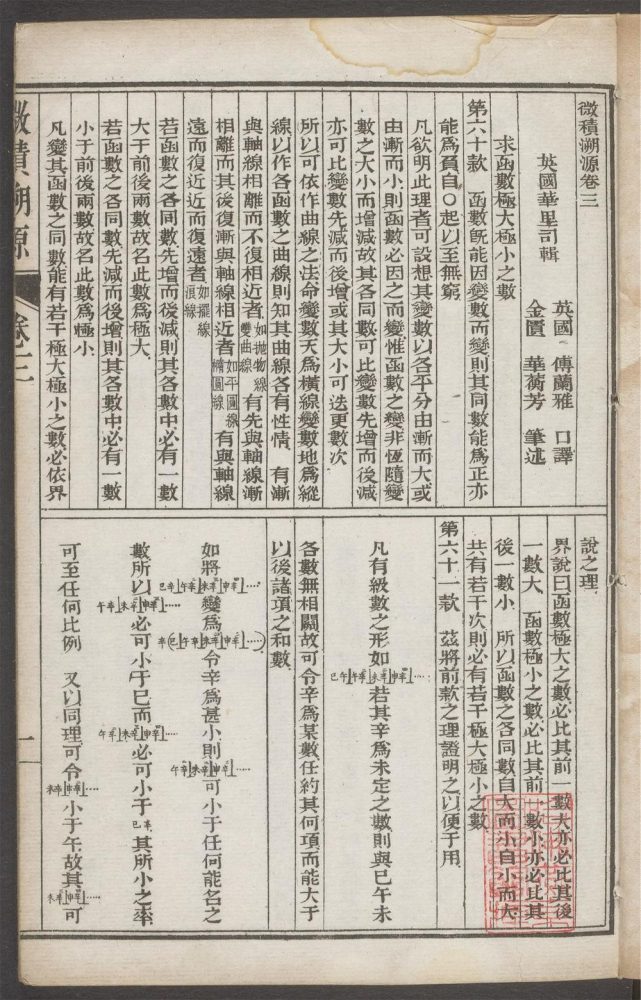 微積溯源卷三
英國華里司輯
英國 傅蘭雅 口譯
金匱 華蘅芳 筆述
求函數極大極小之數
第六十款 函數旣能因變數而變則其同數能爲正亦
能爲負自〇起以至無窮
凡欲明此理者可設想其變數以各平分由漸而大或
由漸而小則函數必因之而變惟函數之變非恆隨變
數之大小而增減故其各同數可比變數先增而後減
亦可比變數先減而後增或其大小可迭更數次
所以可依作曲線之法命變數天爲橫線變數地爲縱
線以作各函數之曲線則知其曲線各有性情 有漸
與軸線相離而不復相近者如拋物線雙曲線有先與軸線漸
相離而其後復漸與軸線相近者如平圓線橢圓線有與軸線
遠而復近近而復遠者如擺線
若函數之各同數先增而後減則其各數中必有一數
大于前後兩數故名此數爲極大
若函數之各同數先減而後增則其各數中必有一數
小于前後兩數故名此數爲極小
凡變其函數之同數能有若干極大極小之數必依界
微積溯源
卷三
一
說之理
界說曰函數極大之數必比其前一數大亦必比其後
一數大 函數極小之數必比其前一數小亦必比其
後一數小 所以函數之各同數自大而小自小而大
共有若干次則必有若干極大極小之數
第六十一款 茲將前款之理證明之以便于用
凡有級數之形如
若其辛爲未定之數則與巳午未
各數無相關故可令辛爲某數任約其何項而能大于
以後諸項之和數
如將
變爲
令辛爲甚小則
可小于任何能名之
數所以
必可小于巳而
必可小于
其所小之率
可至任何比例 又以同理可令
小于午故其
可